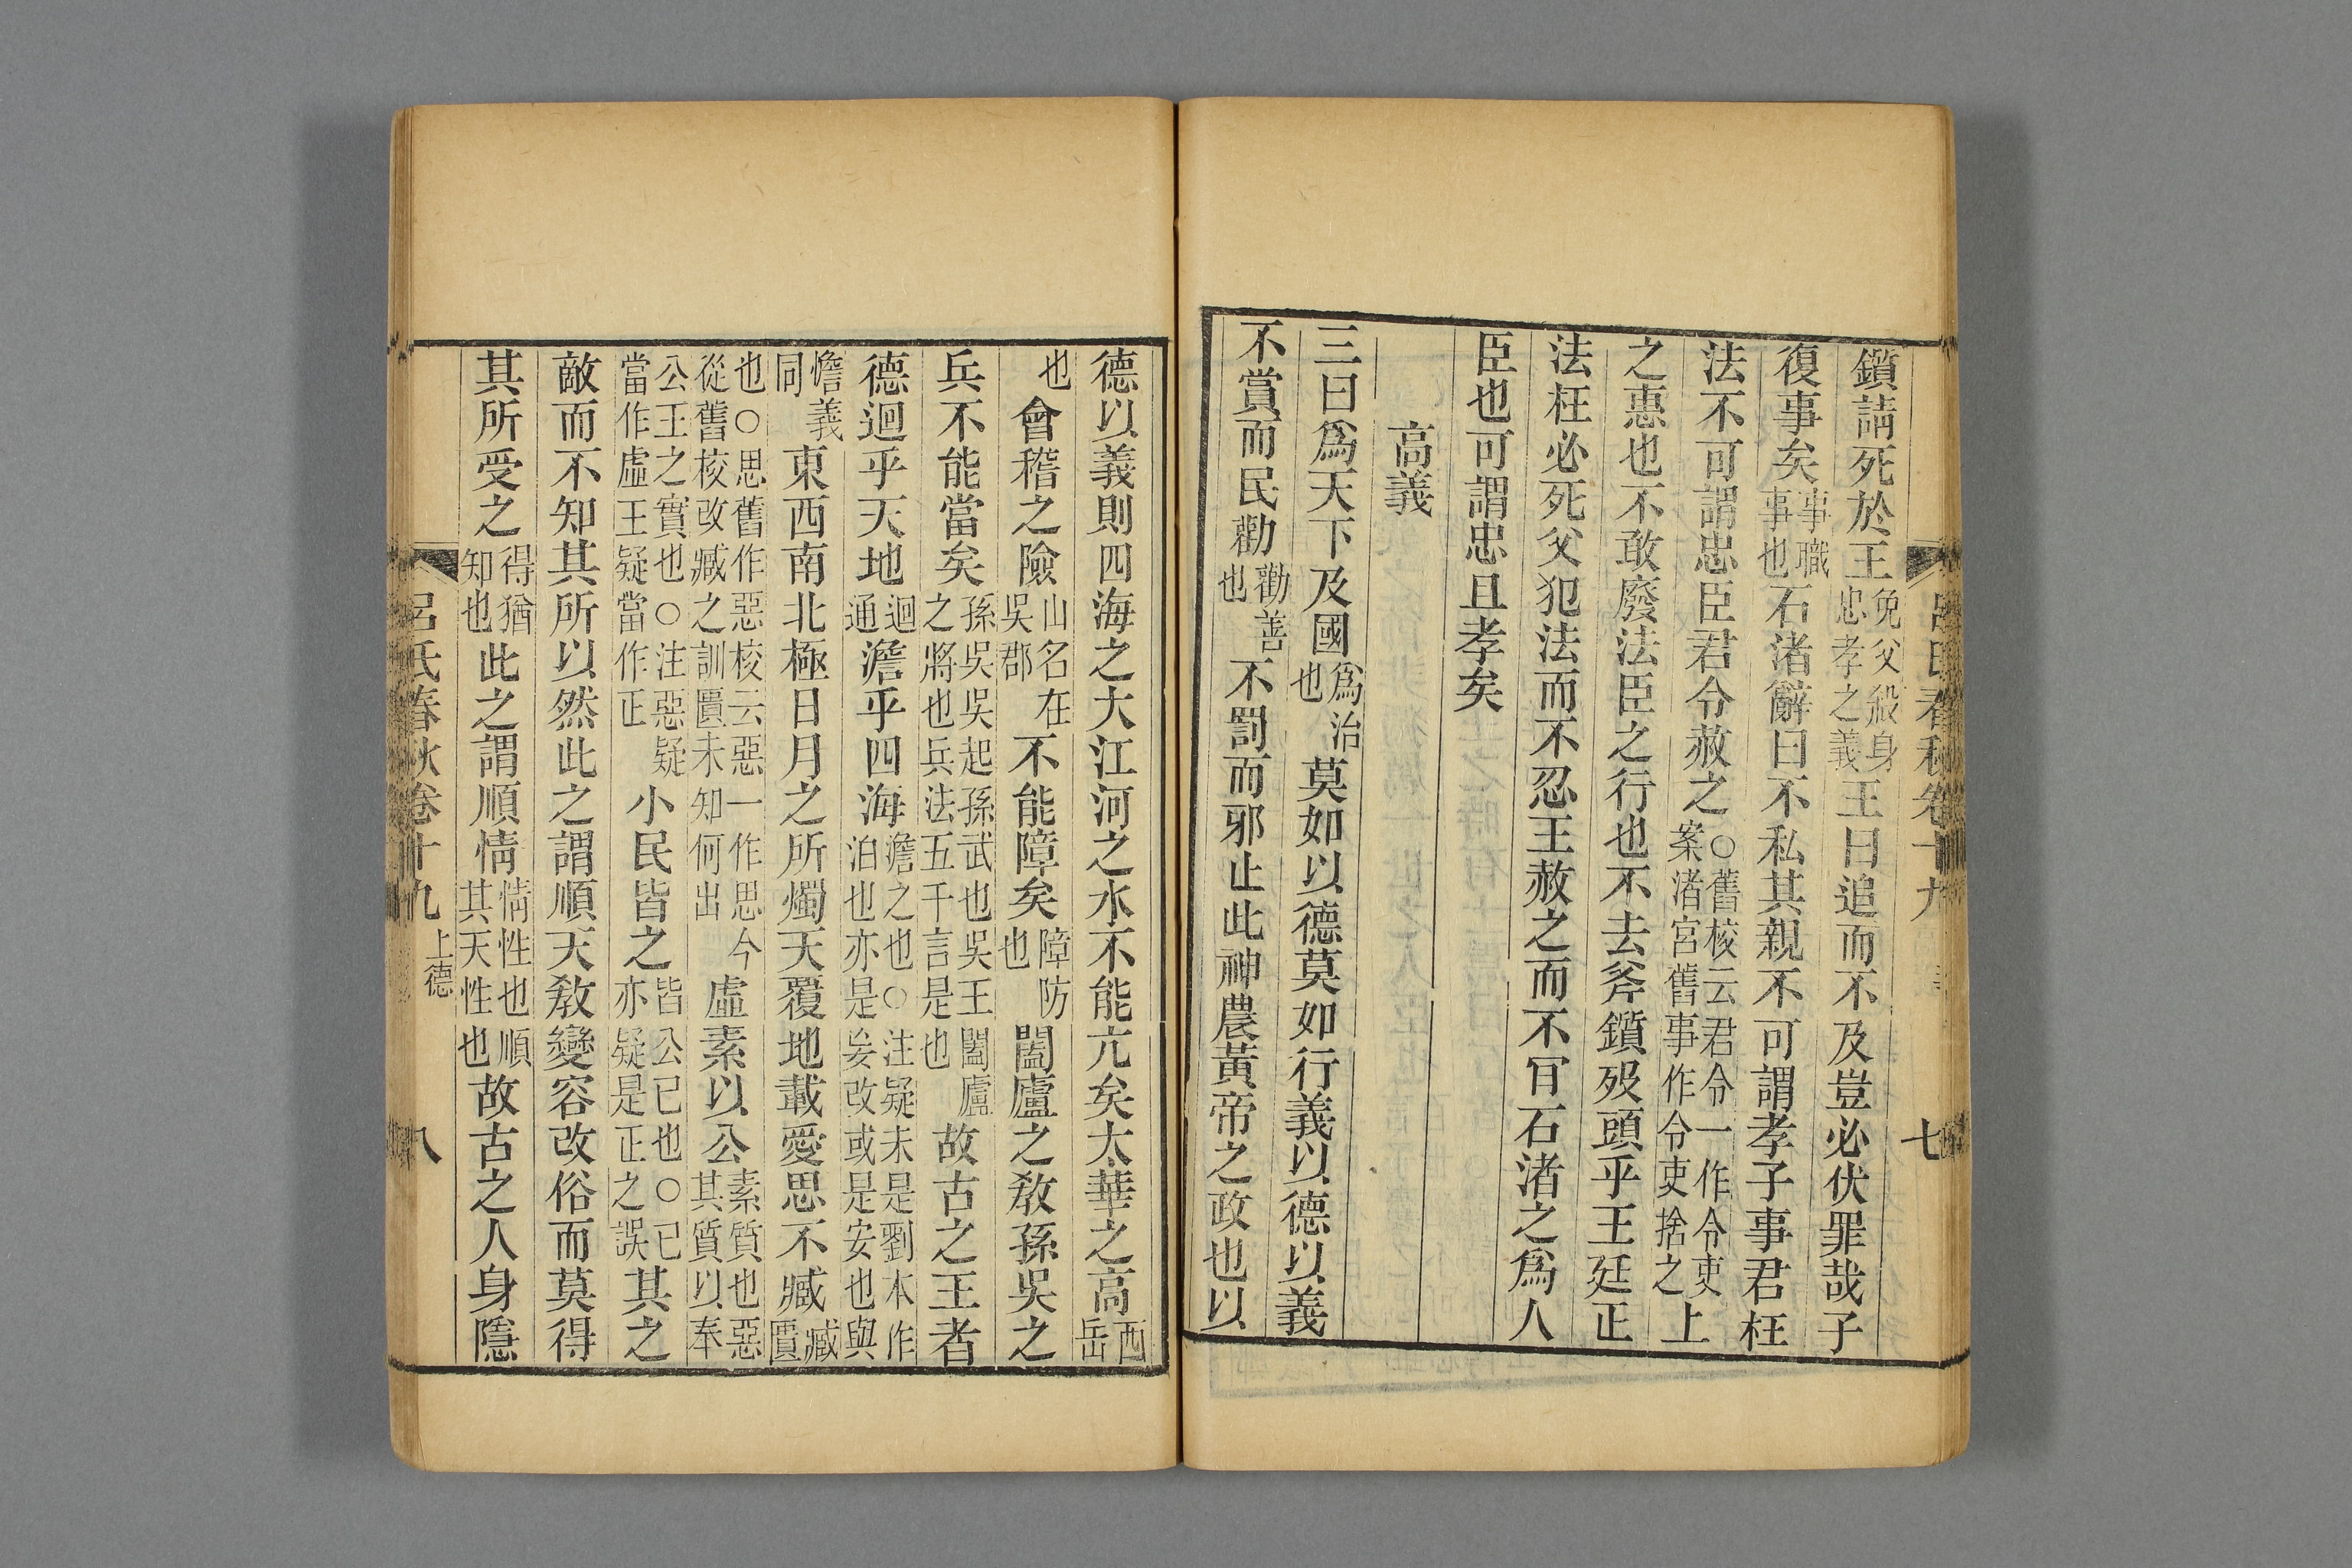 呂氏春秋卷十九
七
鑕請死於王免父殺身忠孝之義王曰追而不及豈必伏罪哉子
復事矣事職事也石渚辭曰不私其親不可謂孝子事君枉
法不可謂忠臣君令赦之○舊校云君令一作令吏案渚宮舊事作令吏捨之上
之惠也不敢廢法臣之行也不去斧鑕歿頭乎王廷正
法枉必死父犯法而不忍王赦之而不肎石渚之爲人
臣也可謂忠且孝矣
高義
三曰爲天下及國爲治也莫如以德莫如行義以德以義
不賞而民勸勸善也不罰而邪止此神農黃帝之政也以
德以義則四海之大江河之水不能亢矣太華之高西岳
也會稽之險山名在吳郡不能障矣障防也闔廬之敎孫吳之
兵不能當矣孫吳吳起孫武也吳王闔廬之將也兵法五千言是也故古之王者
德迴乎天地迴通澹乎四海澹之也○注疑未是劉本作泊也亦是妄改或是安也與
憺義同東西南北極日月之所燭天覆地載愛思不臧臧匱
也○思舊作惡校云惡一作思今從舊校改臧之訓匱未知何出虛素以公素質也惡其質以奉
公王之實也○注惡疑當作虛王疑當作正小民皆之皆公已也○已亦疑是正之誤其之
敵而不知其所以然此之謂順天敎變容改俗而莫得
其所受之得猶知也此之謂順情情性也順其天性也故古之人身隱
呂氏春秋卷十九
上德
八